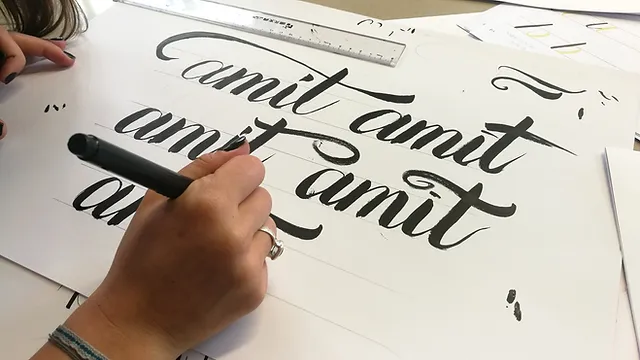 amit amit
amit amit
am